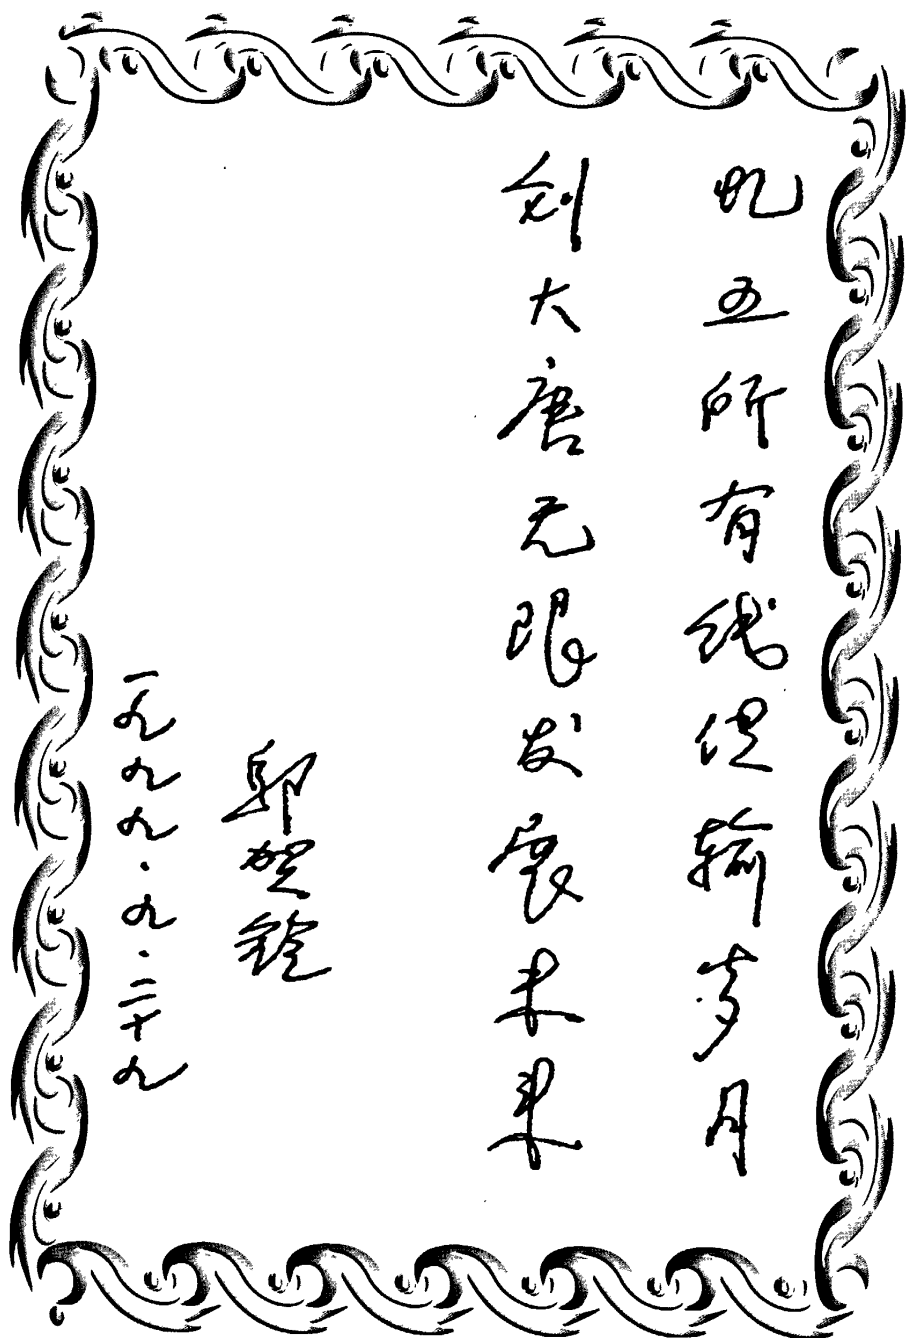 忆五所有线传输岁月
创大唐无限发展未来
邬贺铨
一九九九·九·二十九